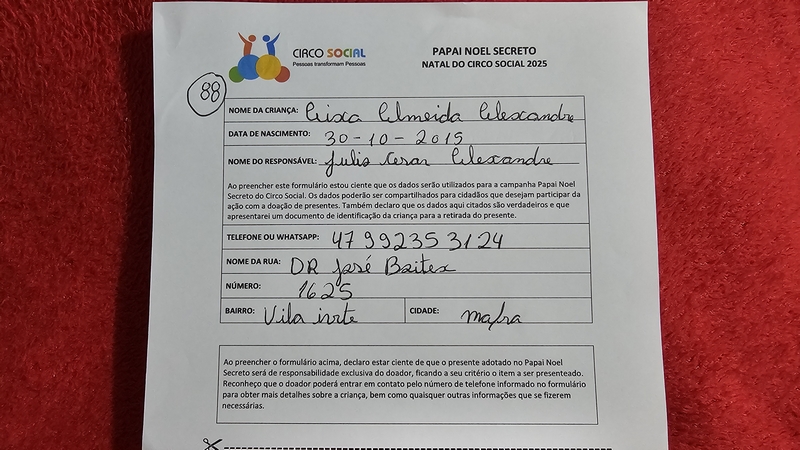 CIRCO SOCIAL
Pessoas transformam Pessoas
PAPAI NOEL SECRETO
NATAL DO CIRCO SOCIAL 2025
88
NOME DA CRIANÇA: Almeida Alexandre
DATA DE NASCIMENTO: 30-10-2015
NOME DO RESPONSÁVEL: Julio Cesar Alexandre
Ao preencher este formulário estou ciente que os dados serão utilizados para a campanha Papai Noel
Secreto do Circo Social. Os dados poderão ser compartilhados para cidadãos que desejam participar da
ação com a doação de presentes. Também declaro que os dados aqui citados são verdadeiros e que
apresentarei um documento de identificação da criança para a retirada do presente.
TELEFONE OU WHATSAPP: 47 992353124
NOME DA RUA: DR José
NÚMERO: 1625
BAIRRO: Vila CIDADE: mafra
Ao preencher o formulário acima, declaro estar ciente de que o presente adotado no Papai Noel
Secreto será de responsabilidade exclusiva do doador, ficando a seu critério o item a ser presenteado.
Reconheço que o doador poderá entrar em contato pelo número de telefone informado no formulário
para obter mais detalhes sobre a criança, bem como quaisquer outras informações que se fizerem
necessárias.